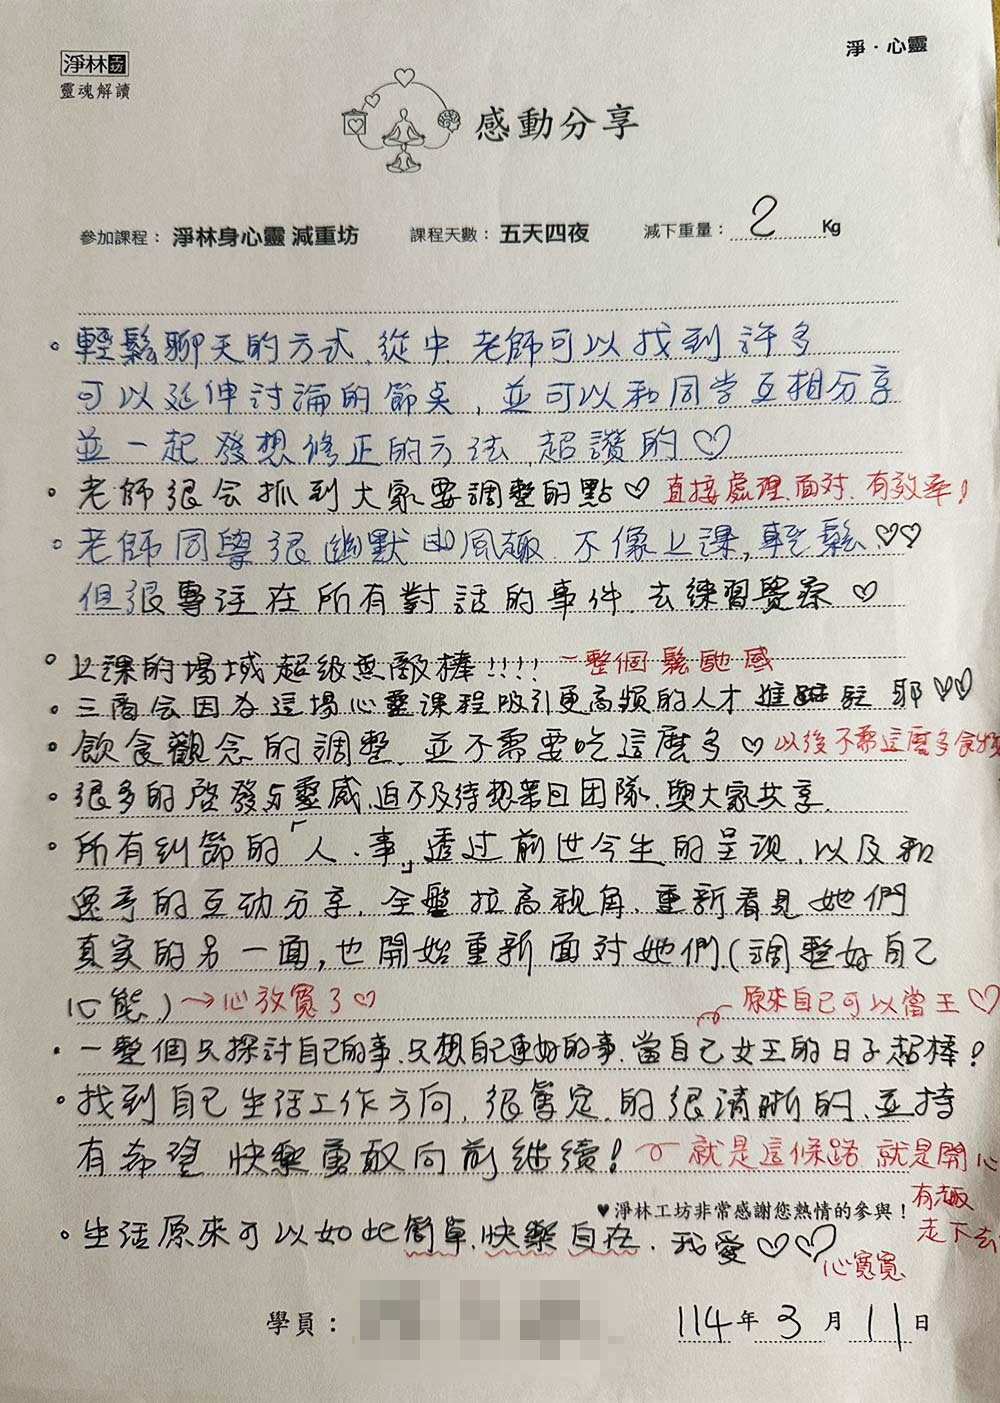 淨林工坊
靈魂解讀
淨．心靈
感動分享
參加課程： 淨林身心靈 減重坊 課程天數： 五天四夜 減下重量： 2 Kg
• 輕鬆聊天的方式、從中 老師可以找到許多
可以延伸討論的節奌，並可以和同学互相分享
並一起發想修正的方法，超讚的♡
• 老師很会抓到大家要調整的點♡ 直接處理、面对、有效率！
• 老師同學很幽默風趣、不像上課，輕鬆♡♡
但很專注在所有對話的事件、去練習覺察♡
• 上課的場域超級無敵棒!!!! －整個鬆馳感
• 三商会因為這場心靈課程吸引更高頻的人才進駐耶♡♡
• 飲食觀念的調整、並不需要吃這麼多♡ 以後不需這麼多食物
• 很多的啓發与靈感、迫不及待想帶回團隊、與大家共享.
• 所有糾節的「人、事」透过前世今生的呈现、以及和
的互动分享、全盤拉高視角、重新看見她們
真実的另一面，也開始重新面对她們(調整好自己
心態)→心放寬了♡ 原來自己可以當王♡
• 一整個只探討自己的事、只想自己更好的事、當自己女王的日子超棒！
• 找到自己生活工作方向、很篤定、的很清晰的、並持
有希望 快樂勇敢向前継續！ 就是這條路 就是開心
♥淨林工坊非常感謝您熱情的參與！ 有趣
走下去
• 生活原來可以如此簡單、快樂自在、我愛♡♡
心寬寬
學員：
114 年 3 月 11 日